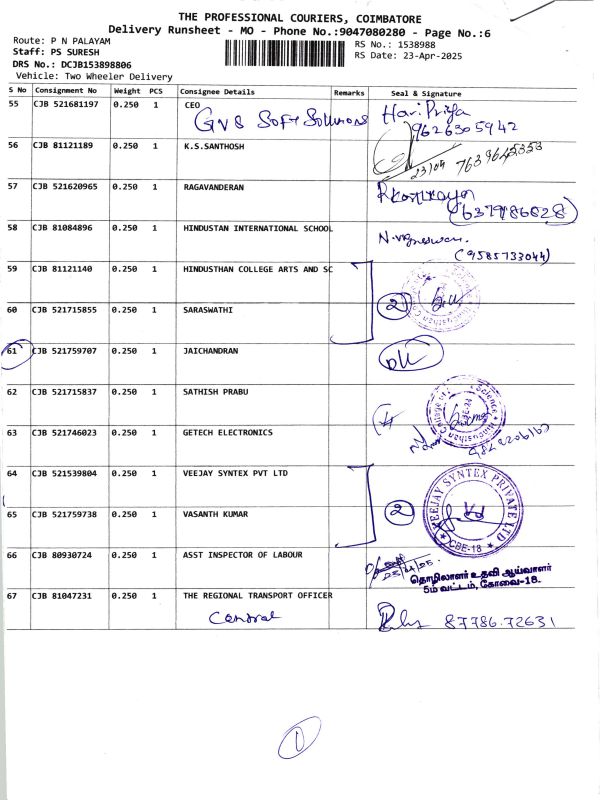 THE PROFESSIONAL COURIERS, COIMBATORE
Delivery Runsheet - MO - Phone No.:9047080280 - Page No.:6
Route: P N PALAYAM
RS No.: 1538988
Staff: PS SURESH
RS Date: 23-Apr-2025
DRS No.: DCJB153898806
Vehicle: Two Wheeler Delivery
S No Consignment No Weight PCS Consignee Details Remarks Seal & Signature
55 CJB 521681197 0.250 1 CEO Hari Priya
GVS Soft Solutions 9626305942
56 CJB 81121189 0.250 1 K.S.SANTHOSH
23/04 7639645353
57 CJB 521620965 0.250 1 RAGAVANDERAN
(6379186028)
58 CJB 81084896 0.250 1 HINDUSTAN INTERNATIONAL SCHOOL
N. vigneswari.
(9585733044)
59 CJB 81121140 0.250 1 HINDUSTHAN COLLEGE ARTS AND SC
60 CJB 521715855 0.250 1 SARASWATHI 2
61 CJB 521759707 0.250 1 JAICHANDRAN
62 CJB 521715837 0.250 1 SATHISH PRABU
63 CJB 521746023 0.250 1 GETECH ELECTRONICS
64 CJB 521539804 0.250 1 VEEJAY SYNTEX PVT LTD
VEEJAY SYNTEX PRIVATE LTD
65 CJB 521759738 0.250 1 VASANTH KUMAR 2
CBE-18
66 CJB 80930724 0.250 1 ASST INSPECTOR OF LABOUR
23/04/25
தொழிலாளர் உதவி ஆய்வாளர்
5ம் வட்டம், கோவை-18.
67 CJB 81047231 0.250 1 THE REGIONAL TRANSPORT OFFICER
Central 87786.72631
1